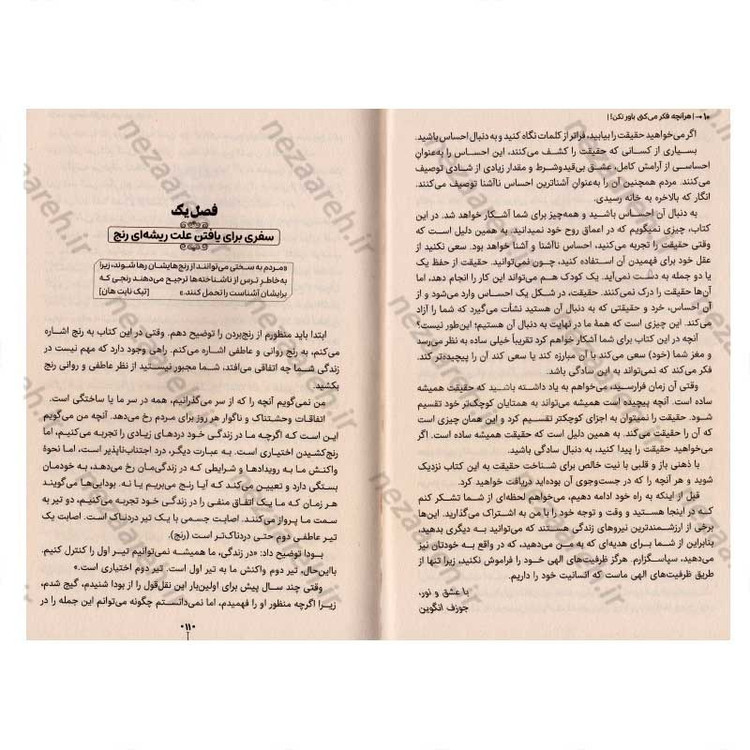 ۱۰ → | هرآنچه فکر می‌کنی باور نکن! |
اگر می‌خواهید حقیقت را بیابید، فراتر از کلمات نگاه کنید و به دنبال احساس باشید.
بسیاری از کسانی که حقیقت را کشف می‌کنند، این احساس را به‌عنوان
احساسی از آرامش کامل، عشق بی‌قیدوشرط و مقدار زیادی از شادی توصیف
می‌کنند. مردم همچنین آن را به‌عنوان آشناترین احساس ناآشنا توصیف می‌کنند.
انگار که بالاخره به خانه رسیدی.
به دنبال آن احساس باشید و همه‌چیز برای شما آشکار خواهد شد. در این
کتاب، چیزی نمیگویم که در اعماق روح خود نمیدانید. به همین دلیل است که
وقتی حقیقت را تجربه می‌کنید، احساس ناآشنا و آشنا خواهد بود. سعی نکنید از
عقل خود برای فهمیدن آن استفاده کنید، چون نمی‌توانید. حقیقت از حفظ یک
یا دو جمله به دست نمی‌آید. یک کودک هم می‌تواند این کار را انجام دهد، اما
آن‌ها حقیقت را درک نمی‌کنند. حقیقت، در شکل یک احساس وارد می‌شود و از
آن احساس، خرد و حقیقتی که به دنبال آن هستید نشأت می‌گیرد که شما را آزاد
می‌کند. این چیزی است که همهٔ ما در نهایت به دنبال آن هستیم؛ این‌طور نیست؟
آنچه در این کتاب برای شما آشکار خواهم کرد تقریباً خیلی ساده به نظر می‌رسد
و مغز شما (خود) سعی با آن مبارزه کند یا سعی کند آن را پیچیده‌تر کند.
فکر می‌کند که نمی‌تواند به این سادگی باشد.
وقتی آن زمان فرارسید، می‌خواهم به یاد داشته باشید که حقیقت همیشه
ساده است. آنچه پیچیده است همیشه می‌تواند به همتایان کوچک‌تر خود تقسیم
شود. حقیقت را نمیتوان به اجزای کوچکتر تقسیم کرد و این همان چیزی است
که حقیقت است. به همین دلیل است که حقیقت همیشه ساده است. اگر
می‌خواهید حقیقت را پیدا کنید، به دنبال سادگی باشید.
با ذهنی باز و قلبی با نیت خالص برای شناخت حقیقت به این کتاب نزدیک
شوید و هر آنچه را که در جست‌وجوی آن بوده‌اید دریافت خواهید کرد.
قبل از اینکه به راه خود ادامه دهیم، می‌خواهم لحظه‌ای از شما تشکر کنم
که در اینجا هستید و وقت و توجه خود را با من به اشتراک می‌گذارید. این‌ها
برخی از ارزشمندترین نیروهای زندگی هستند که می‌توانید به دیگری بدهید،
بنابراین از شما برای هدیه‌ای که به من می‌دهید، که در واقع به خودتان نیز
می‌دهید، سپاسگزارم. هرگز ظرفیت‌های الهی خود را فراموش نکنید، زیرا تنها از
طریق ظرفیت‌های الهی ماست که انسانیت خود را داریم.
با عشق و نور،
جوزف انگوین
فصل یک
سفری برای یافتن علت ریشه‌ای رنج
«مردم به سختی می‌توانند از رنج‌هایشان رها شوند، زیرا
به‌خاطر ترس از ناشناخته‌ها ترجیح می‌دهند رنجی که
برایشان آشناست را تحمل کنند.» [تیک نایت هان]
ابتدا باید منظورم از رنج‌بردن را توضیح دهم. وقتی در این کتاب به رنج اشاره
می‌کنم، به رنج روانی و عاطفی اشاره می‌کنم. راهی وجود دارد که مهم نیست در
زندگی شما چه اتفاقی می‌افتد، شما مجبور نیستید از نظر عاطفی و روانی رنج
بکشید.
من نمی‌گویم آنچه را که از سر می‌گذرانیم، همه در سر ما یا ساختگی است.
اتفاقات وحشتناک و ناگوار هر روز برای مردم رخ می‌دهد. آنچه من می‌گویم
این است که اگرچه ما در زندگی خود دردهای زیادی را تجربه می‌کنیم، اما
رنج‌کشیدن اختیاری است. به عبارت دیگر، درد اجتناب‌ناپذیر است، اما نحوهٔ
واکنش ما به رویدادها و شرایطی که در زندگی‌مان رخ می‌دهد، به خودمان
بستگی دارد و تعیین می‌کند که آیا رنج می‌بریم یا نه. بودایی‌ها می‌گویند
هر زمان که ما یک اتفاق منفی را در زندگی خود تجربه می‌کنیم، دو تیر به
سمت ما پرواز می‌کنند. اصابت جسمی با یک تیر دردناک است. اصابت یک
تیر عاطفی دوم حتی دردناک‌تر است (رنج).
بودا توضیح داد: «در زندگی، ما همیشه نمی‌توانیم تیر اول را کنترل کنیم.
بااین‌حال، تیر دوم واکنش ما به تیر اول است. تیر دوم اختیاری است.»
وقتی چند سال پیش برای اولین‌بار این نقل‌قول را از بودا شنیدم، گیج شدم،
زیرا اگرچه منظور او را فهمیدم، اما نمی‌دانستم چگونه می‌توانم این جمله را در
۰۱۱۰
nezaareh.ir
nezaareh.ir
nezaareh.ir
nezaareh.ir
nezaareh.ir
nezaareh.ir